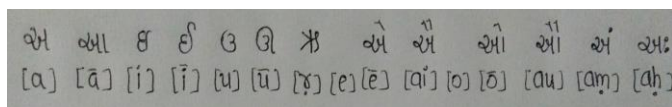 અ આ ઇ ઈ ઉ ઊ ઋ એ ઐ ઓ ઔ અં અઃ
[a] [ā] [i] [ī] [u] [ū] [ṛ] [e] [ē] [ai] [o] [ō] [au] [aṃ] [aḥ]